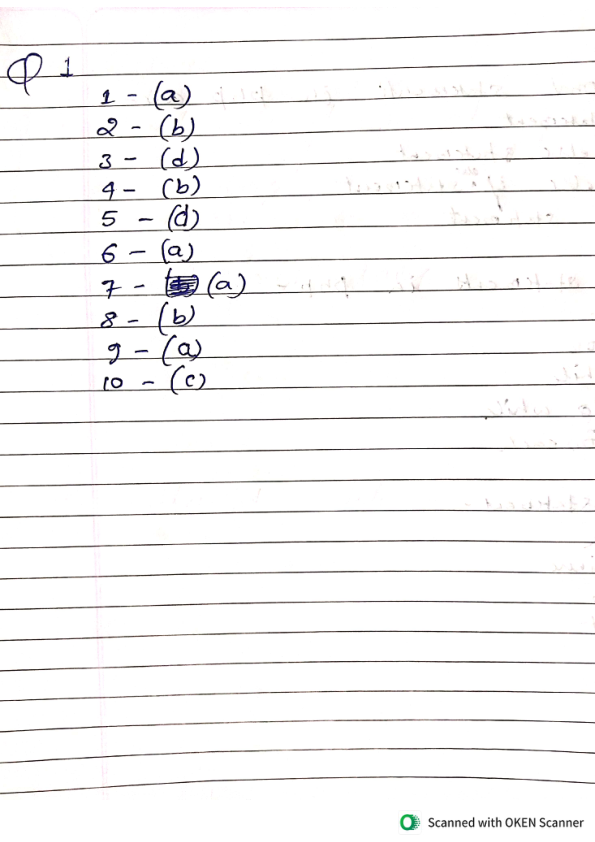 Q 1
1 - (a)
2 - (b)
3 - (d)
4 - (b)
5 - (d)
6 - (a)
7 - (a)
8 - (b)
9 - (a)
10 - (c)
Scanned with OKEN Scanner